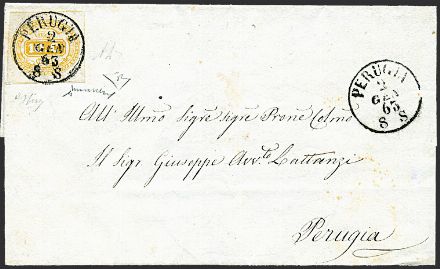 PERUGIA
2
GEN
63
8 S
PERUGIA
2
GEN
63
8 S
All' Illmo Sigre Sigre Prone Colmo
Il Sigr Giuseppe Avv.to Lattanzi
Perugia